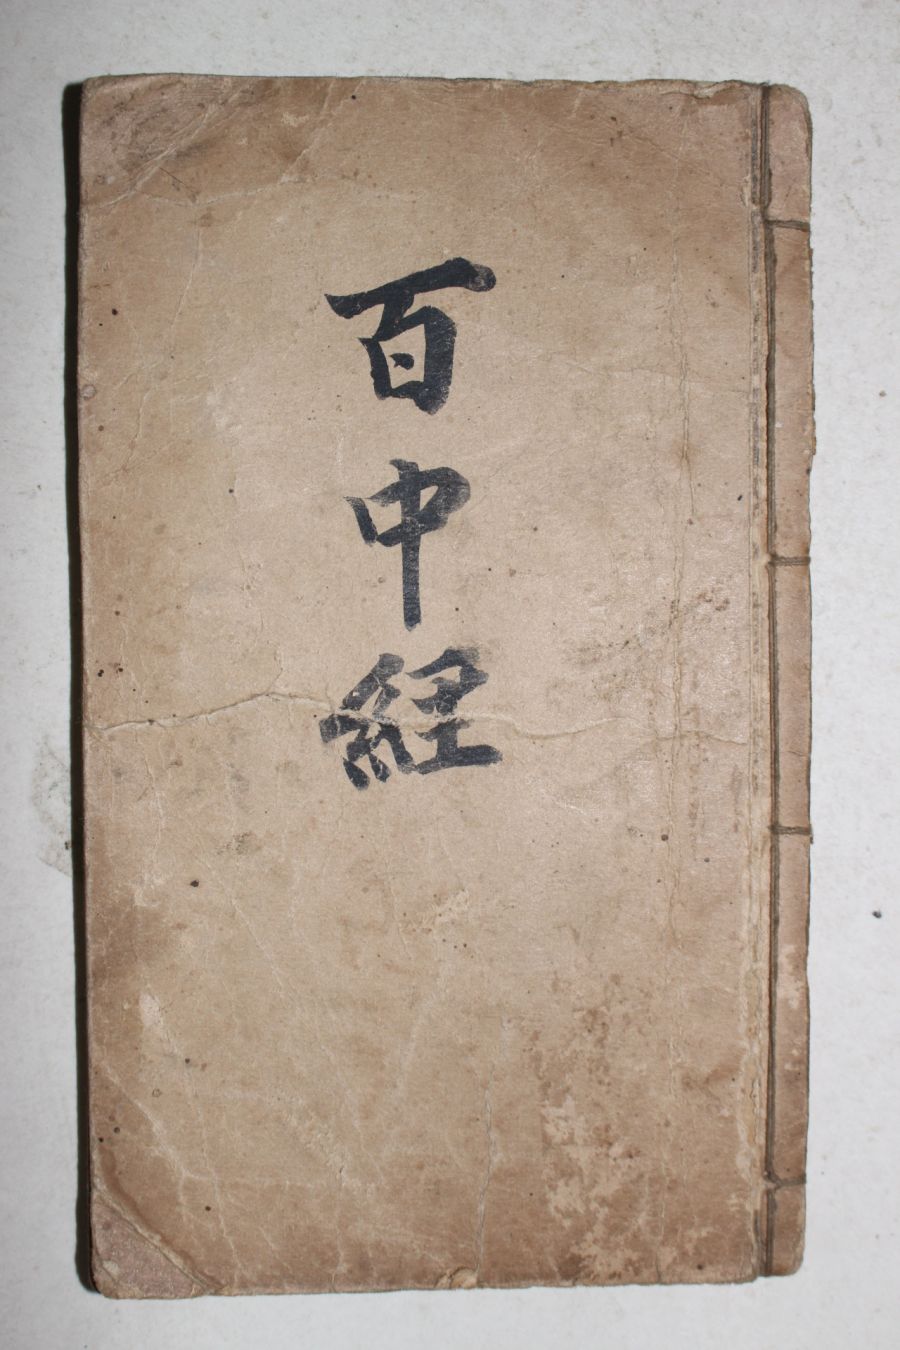 百中經